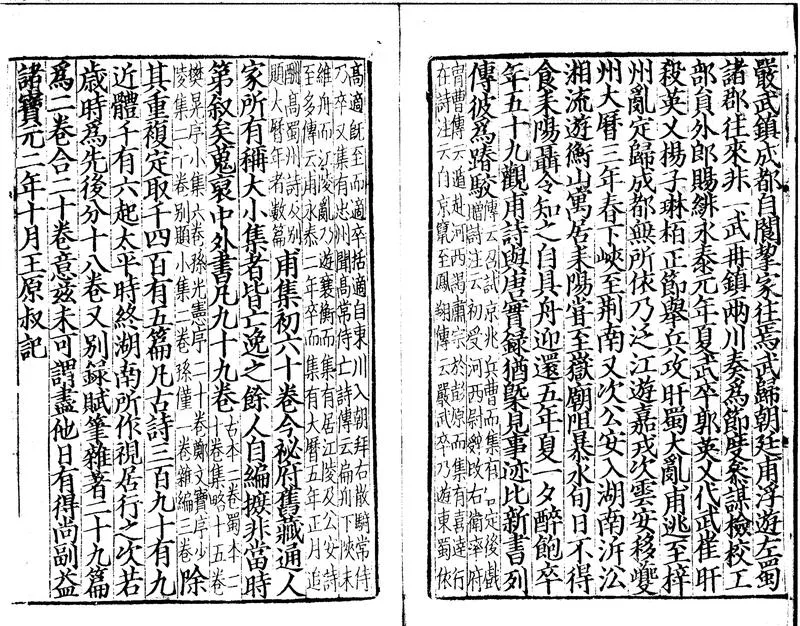 嚴武鎮成都自閬挈家往焉武歸朝廷甫浮遊左蜀
諸郡往來非一武再鎮兩川奏為節度參謀檢校工
部員外郎賜緋永泰元年夏武卒郭英乂代武崔旰
殺英乂楊子琳栢正節舉兵攻旰蜀大亂甫逃至梓
州亂定歸成都無所依乃泛江遊嘉戎次雲安移夔
州大曆三年春下峽至荊南又次公安入湖南泝沿
湘流遊衡山寓居耒陽嘗至嶽廟阻暴水旬日不得
食耒陽聶令知之自具舟迎還五年夏一夕醉飽卒
年五十九觀甫詩與唐實錄猶槩見事迹比新書列
傳彼為踳駮
傳云召試京兆兵曹而集有官定後戲
贈詩注云初受河西尉辭改右衛率府
胄曹傳云遁赴河西謁肅宗於彭原而集有喜達行
在詩注云自京竄至鳳翔傳云嚴武卒乃遊東蜀依
高適既至而適卒按適自東川入朝拜右散騎常侍
乃卒又集有忠州聞高常侍亡詩傳云扁舟下陜未
維舟而江陵亂乃遊襄衡而集有居江陵及公安詩
至多傳云甫永泰二年卒而集有大曆五年正月追
酬高蜀州詩及別
題大曆年者數篇
甫集初六十卷今祕府舊藏通人
家所有稱大小集者皆亡逸之餘人自編摭非當時
第叙矣蒐裒中外書凡九十九卷
古本二卷蜀本二
十卷集略十五卷
樊晃序小集六卷孫光憲序二十卷鄭文寶序少
陵集二十卷別題小集二卷孫僅一卷雜編三卷
除
其重複定取千四百有五篇凡古詩三百九十有九
近體千有六起太平時終湖南所作視居行之次若
歲時為先後分十八卷又別錄賦筆雜著二十九篇
為二卷合二十卷意茲未可謂盡他日有得尚副益
諸寶元二年十月王原叔記